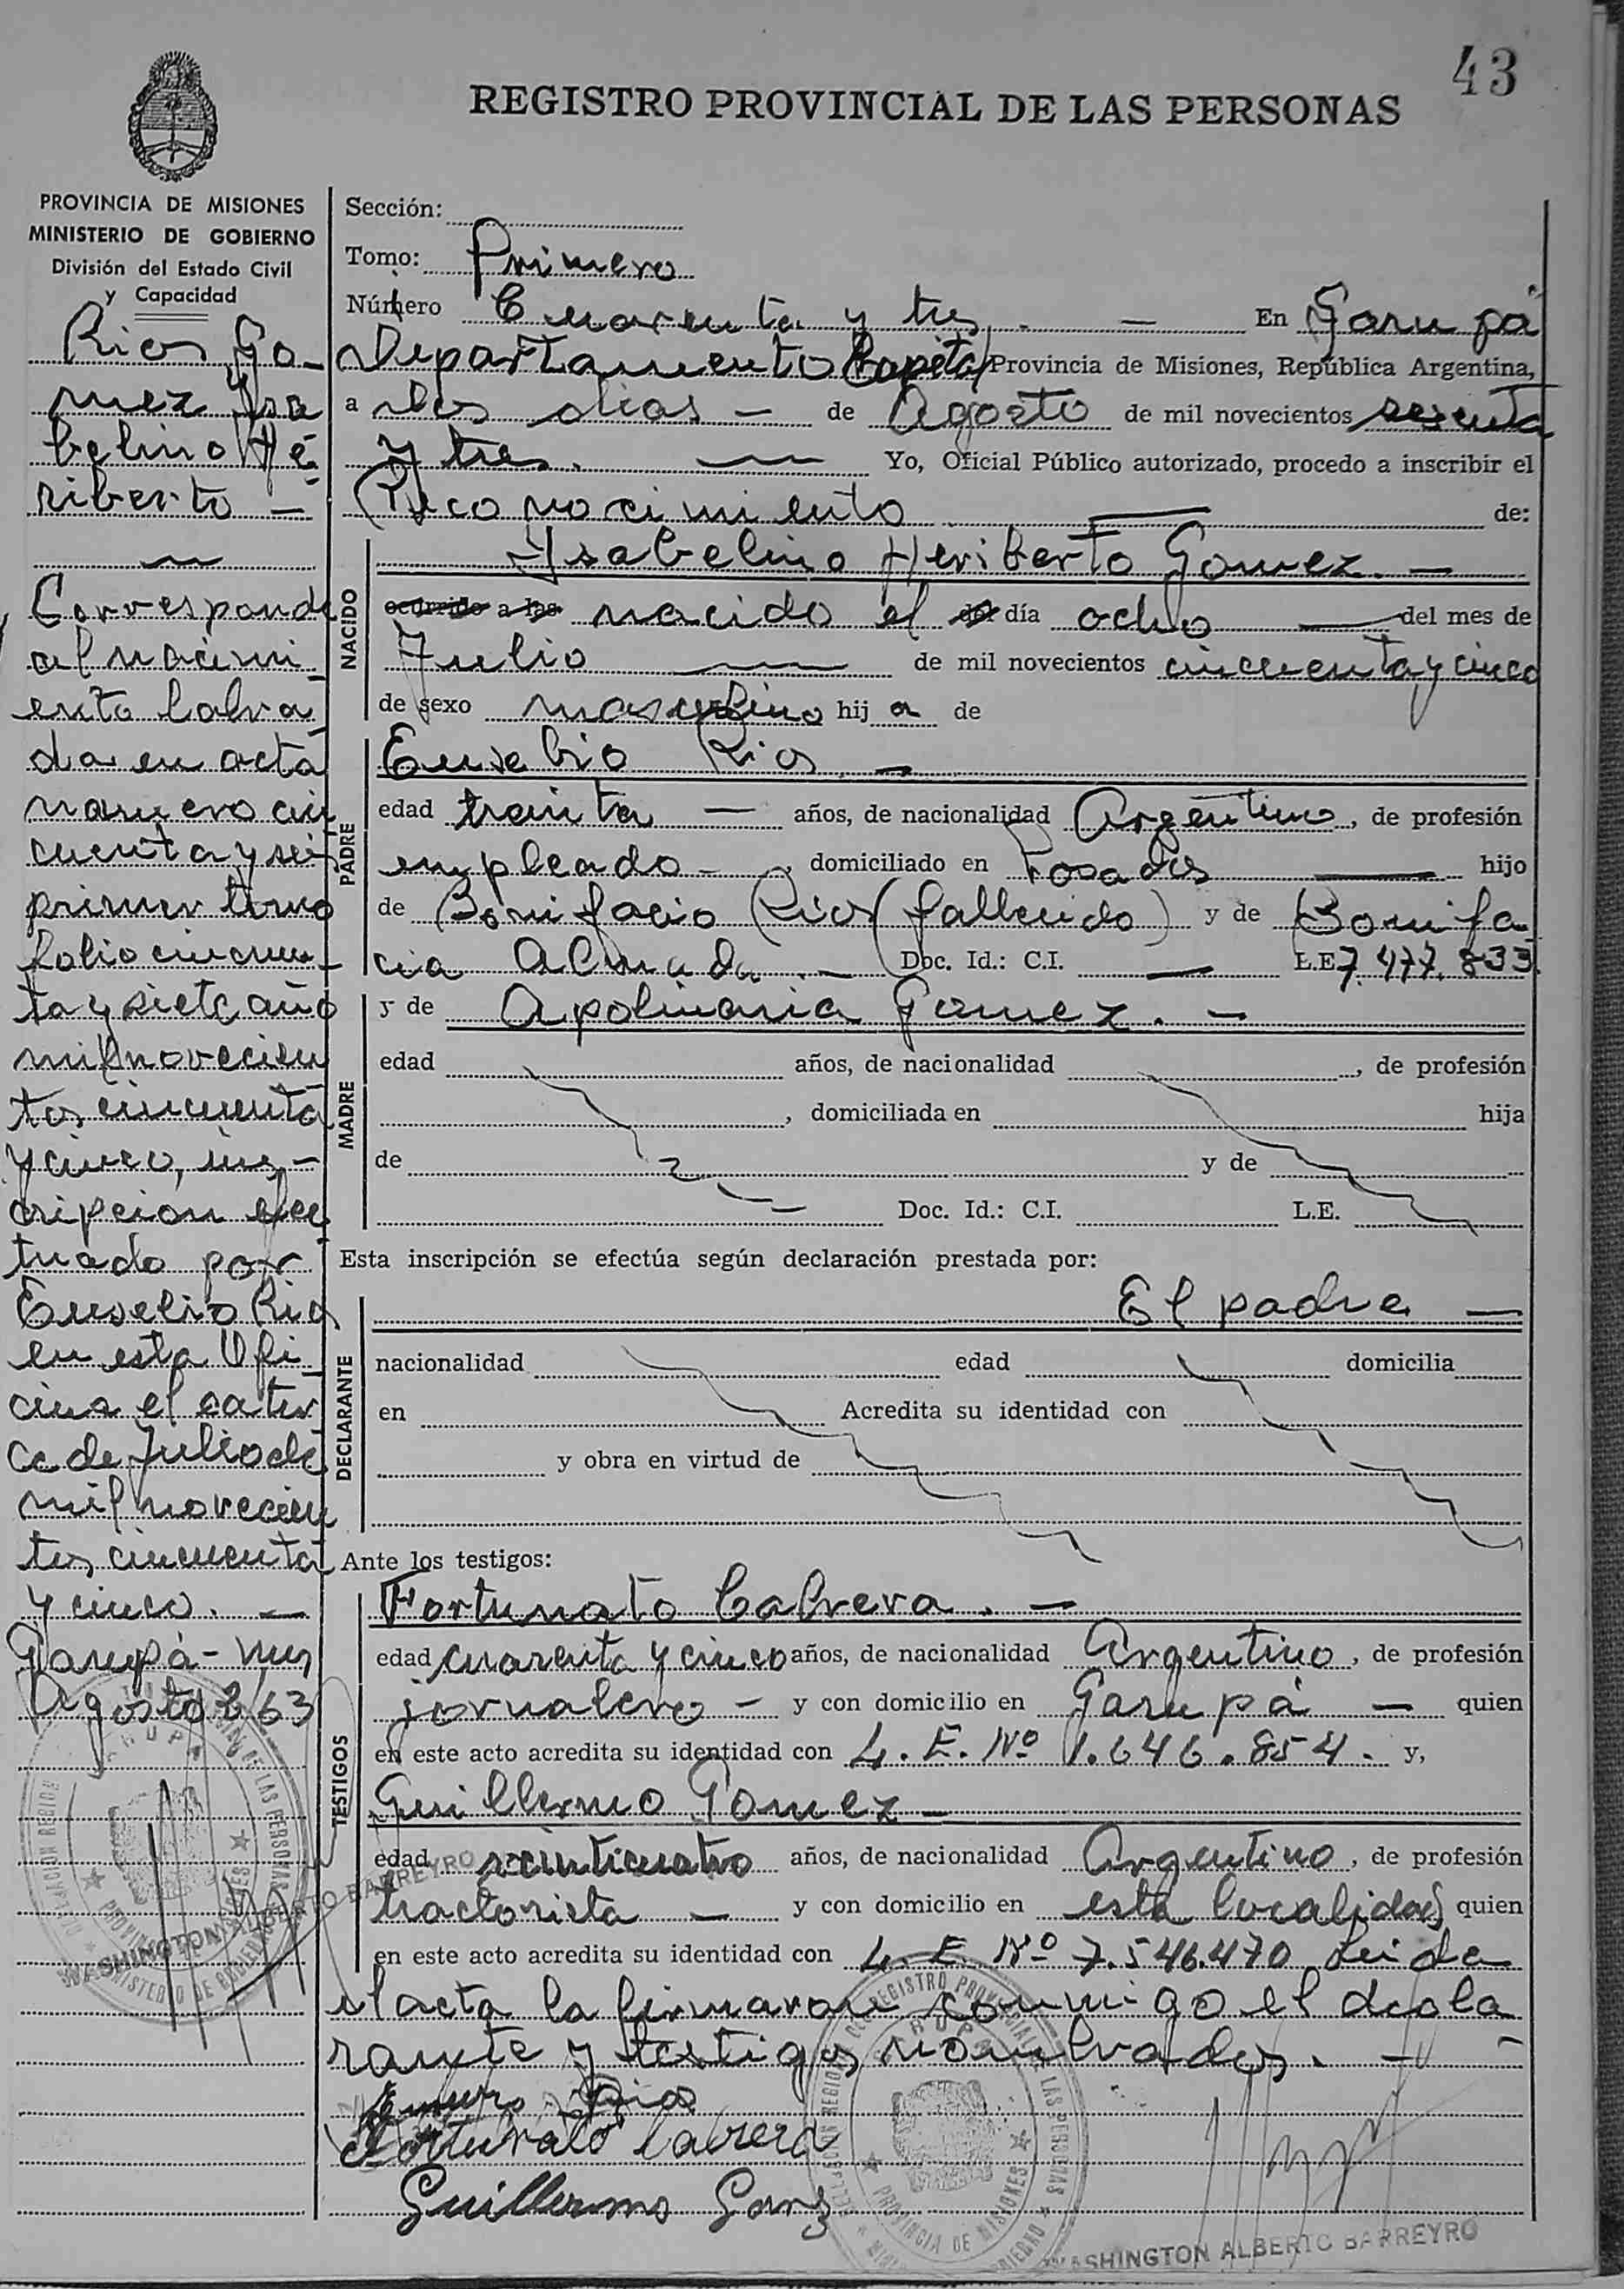 43
REGISTRO PROVINCIAL DE LAS PERSONAS
PROVINCIA DE MISIONES
MINISTERIO DE GOBIERNO
División del Estado Civil
y Capacidad
Rios Go-
mez Ysa
belino He
riberto —
Corresponde
al nacimi
ento labra
da en acta
numero cin
cuenta y seis
primer tomo
folio cincuen-
ta y siete año
mil novecien
tos cincuenta
y cinco, ins-
cripción efec
tuado por
Eusebio Rios
en esta Ofi
cina el cator
ce de Julio de
mil novecien
tos cincuenta
y cinco. —
Garupá - Mns
Agosto 2/63
WASHINGTON ALBERTO BARREYRO
Sección:
Tomo: Primero
Número Cuarenta y tres. — En Garupá
Departamento Capital Provincia de Misiones, República Argentina,
a dos dias — de Agosto de mil novecientos sesenta
y tres. — Yo, Oficial Público autorizado, procedo a inscribir el
Reconocimiento — de:
NACIDO
Ysabelino Heriberto Gomez. —
ocurrido a las nacido el del día ocho — del mes de
Julio — de mil novecientos cincuenta y cinco
de sexo masculino hij o de
PADRE
Eusebio Rios. —
edad treinta — años, de nacionalidad Argentino, de profesión
empleado —, domiciliado en Posadas — hijo
de Bonifacio Rios (fallecido) y de Bonifa
cia Almada. — Doc. Id.: C.I. — L.E 7.477.833.
MADRE
y de Apolinaria Gomez. —
edad años, de nacionalidad , de profesión
, domiciliada en hija
de y de
Doc. Id.: C.I. L.E.
Esta inscripción se efectúa según declaración prestada por:
DECLARANTE
El padre —
nacionalidad edad domicilia
en Acredita su identidad con
y obra en virtud de
Ante los testigos:
TESTIGOS
Fortunato Cabrera. —
edad cuarenta y cinco años, de nacionalidad Argentino, de profesión
jornalero — y con domicilio en Garupá — quien
en este acto acredita su identidad con L. E. Nº 1.646.854. y,
Guillermo Gomez —
edad veinticuatro años, de nacionalidad Argentino, de profesión
tractorista — y con domicilio en esta localidad quien
en este acto acredita su identidad con L. E. Nº 7.546.470 Leida
el acta la firmaron conmigo el decla
rante y testigos nombrados. —
Rios
Fortunato Cabrera
Guillermo Gomez
REGISTRO PROVINCIAL DE LAS PERSONAS
GARUPA
PROVINCIA DE MISIONES
WASHINGTON ALBERTO BARREYRO